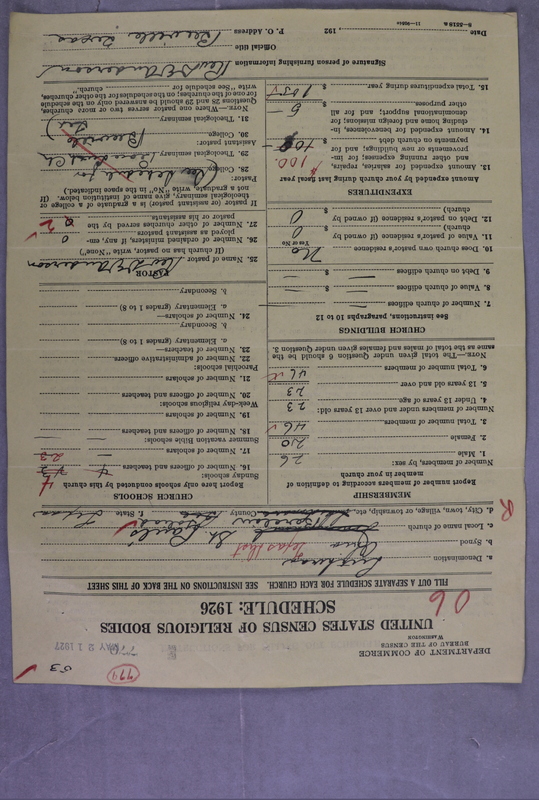 DEPARTMENT OF COMMERCE
BUREAU OF THE CENSUS
WASHINGTON
53
779
MAY 21 1927
UNITED STATES CENSUS OF RELIGIOUS BODIES
SCHEDULE: 1926
06
FILL OUT A SEPARATE SCHEDULE FOR EACH CHURCH. SEE INSTRUCTIONS ON THE BACK OF THIS SHEET
a. Denomination Lutheran
b. Synod Iowa Texas Dist
c. Local name of church St. Paul's
d. City, town, village, or township, etc. County Bee State Texas
R
MEMBERSHIP
Report number of members according to definition of member in your church
Number of members, by sex:
1. Male 26
2. Female 20
3. Total number of members 46
Number of members under and over 13 years old:
4. Under 13 years of age 23
5. 13 years old and over 23
6. Total number of members 46
NOTE.—The total given under Question 6 should be the same as the total of males and females given under Question 3.
CHURCH BUILDINGS
See instructions, paragraphs 10 to 12
7. Number of church edifices —
8. Value of church edifices $ —
9. Debt on church edifices $ —
10. Does church own pastor's residence? No
Yes or No
11. Value of pastor's residence (if owned by church) $ 0
12. Debt on pastor's residence (if owned by church) $ 0
EXPENDITURES
Amount expended by your church during last fiscal year
13. Amount expended for salaries, repairs, and other running expenses; for improvements or new building; and for payments on church debt $ 100
14. Amount expended for benevolences, including home and foreign missions; for denominational support; and for all other purposes $ 5
15. Total expenditures during year $ 105
CHURCH SCHOOLS
Report here only schools conducted by this church
Sunday schools:
16. Number of officers and teachers 4
17. Number of scholars 23
Summer vacation Bible schools:
18. Number of officers and teachers
19. Number of scholars
Week-day religious schools:
20. Number of officers and teachers
21. Number of scholars
Parochial schools:
22. Number of administrative officers
23. Number of teachers—
a. Elementary (grades 1 to 8)
b. Secondary
24. Number of scholars—
a. Elementary (grades 1 to 8)
b. Secondary
PASTOR
25. Name of pastor Rev D E Anderson
(If church has no pastor, write "None")
26. Number of ordained ministers, if any, employed as pastor's assistants 0
27. Number of other churches served by the pastor or his assistants 2
If pastor (or assistant pastor) is a graduate of a college or theological seminary, give name of institution below. (If not a graduate, write "No" in the space indicated.)
Pastor:
28. College
29. Theological seminary
Assistant pastor:
30. College
31. Theological seminary
(NOTE.—Where one pastor serves two or more churches, Questions 28 and 29 should be answered only on the schedule for one of the churches; on the schedule for the other churches, write "See Schedule for church."
Signature of person furnishing information Rev D E Anderson
Official title
Date , 192 P. O. Address Beeville Texas